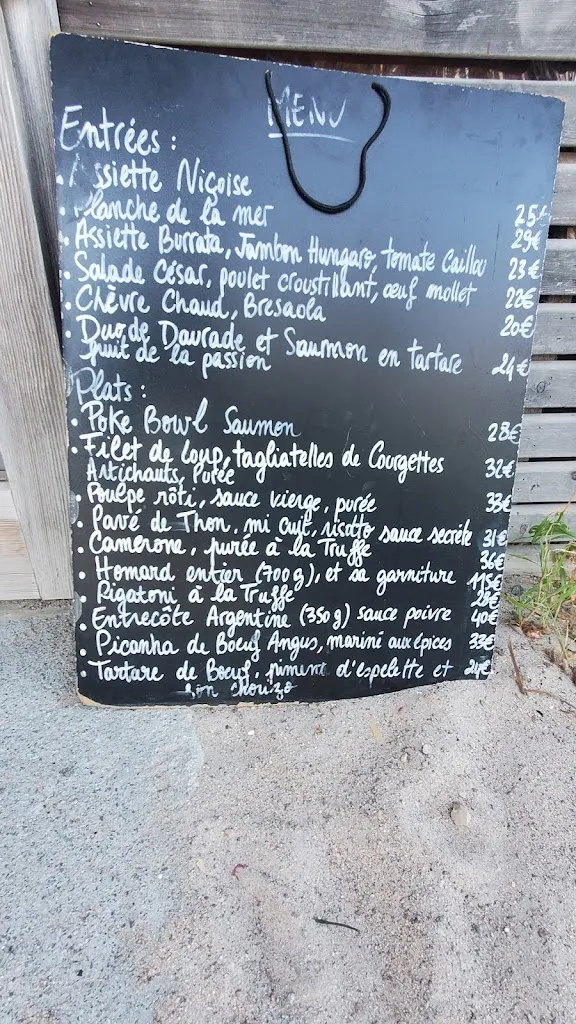 MENU
Entrées :
• Assiette Niçoise 25€
• Planche de la mer 29€
• Assiette Burrata, Jambon Hungaro, tomate Caillou 23€
• Salade césar, poulet croustillant, œuf mollet 22€
• Chèvre Chaud, Bresaola 20€
• Duo de Daurade et Saumon en tartare 24€
fruit de la passion
Plats :
• Poke Bowl Saumon 28€
• Filet de Loup, tagliatelles de Courgettes 32€
Artichauts, Purée
• Poulpe rôti, sauce vierge, purée 33€
• Pavé de Thon, mi cuit, risotto sauce secrète 31€
• Camerone, purée à la Truffe 36€
• Homard entier (700g), et sa garniture 115€
• Rigatoni à la Truffe 28€
• Entrecôte Argentine (350g) sauce poivre 40€
• Picanha de Boeuf Angus, mariné aux épices 33€
• Tartare de Boeuf, piment d'espelette et 24€
son chorizo